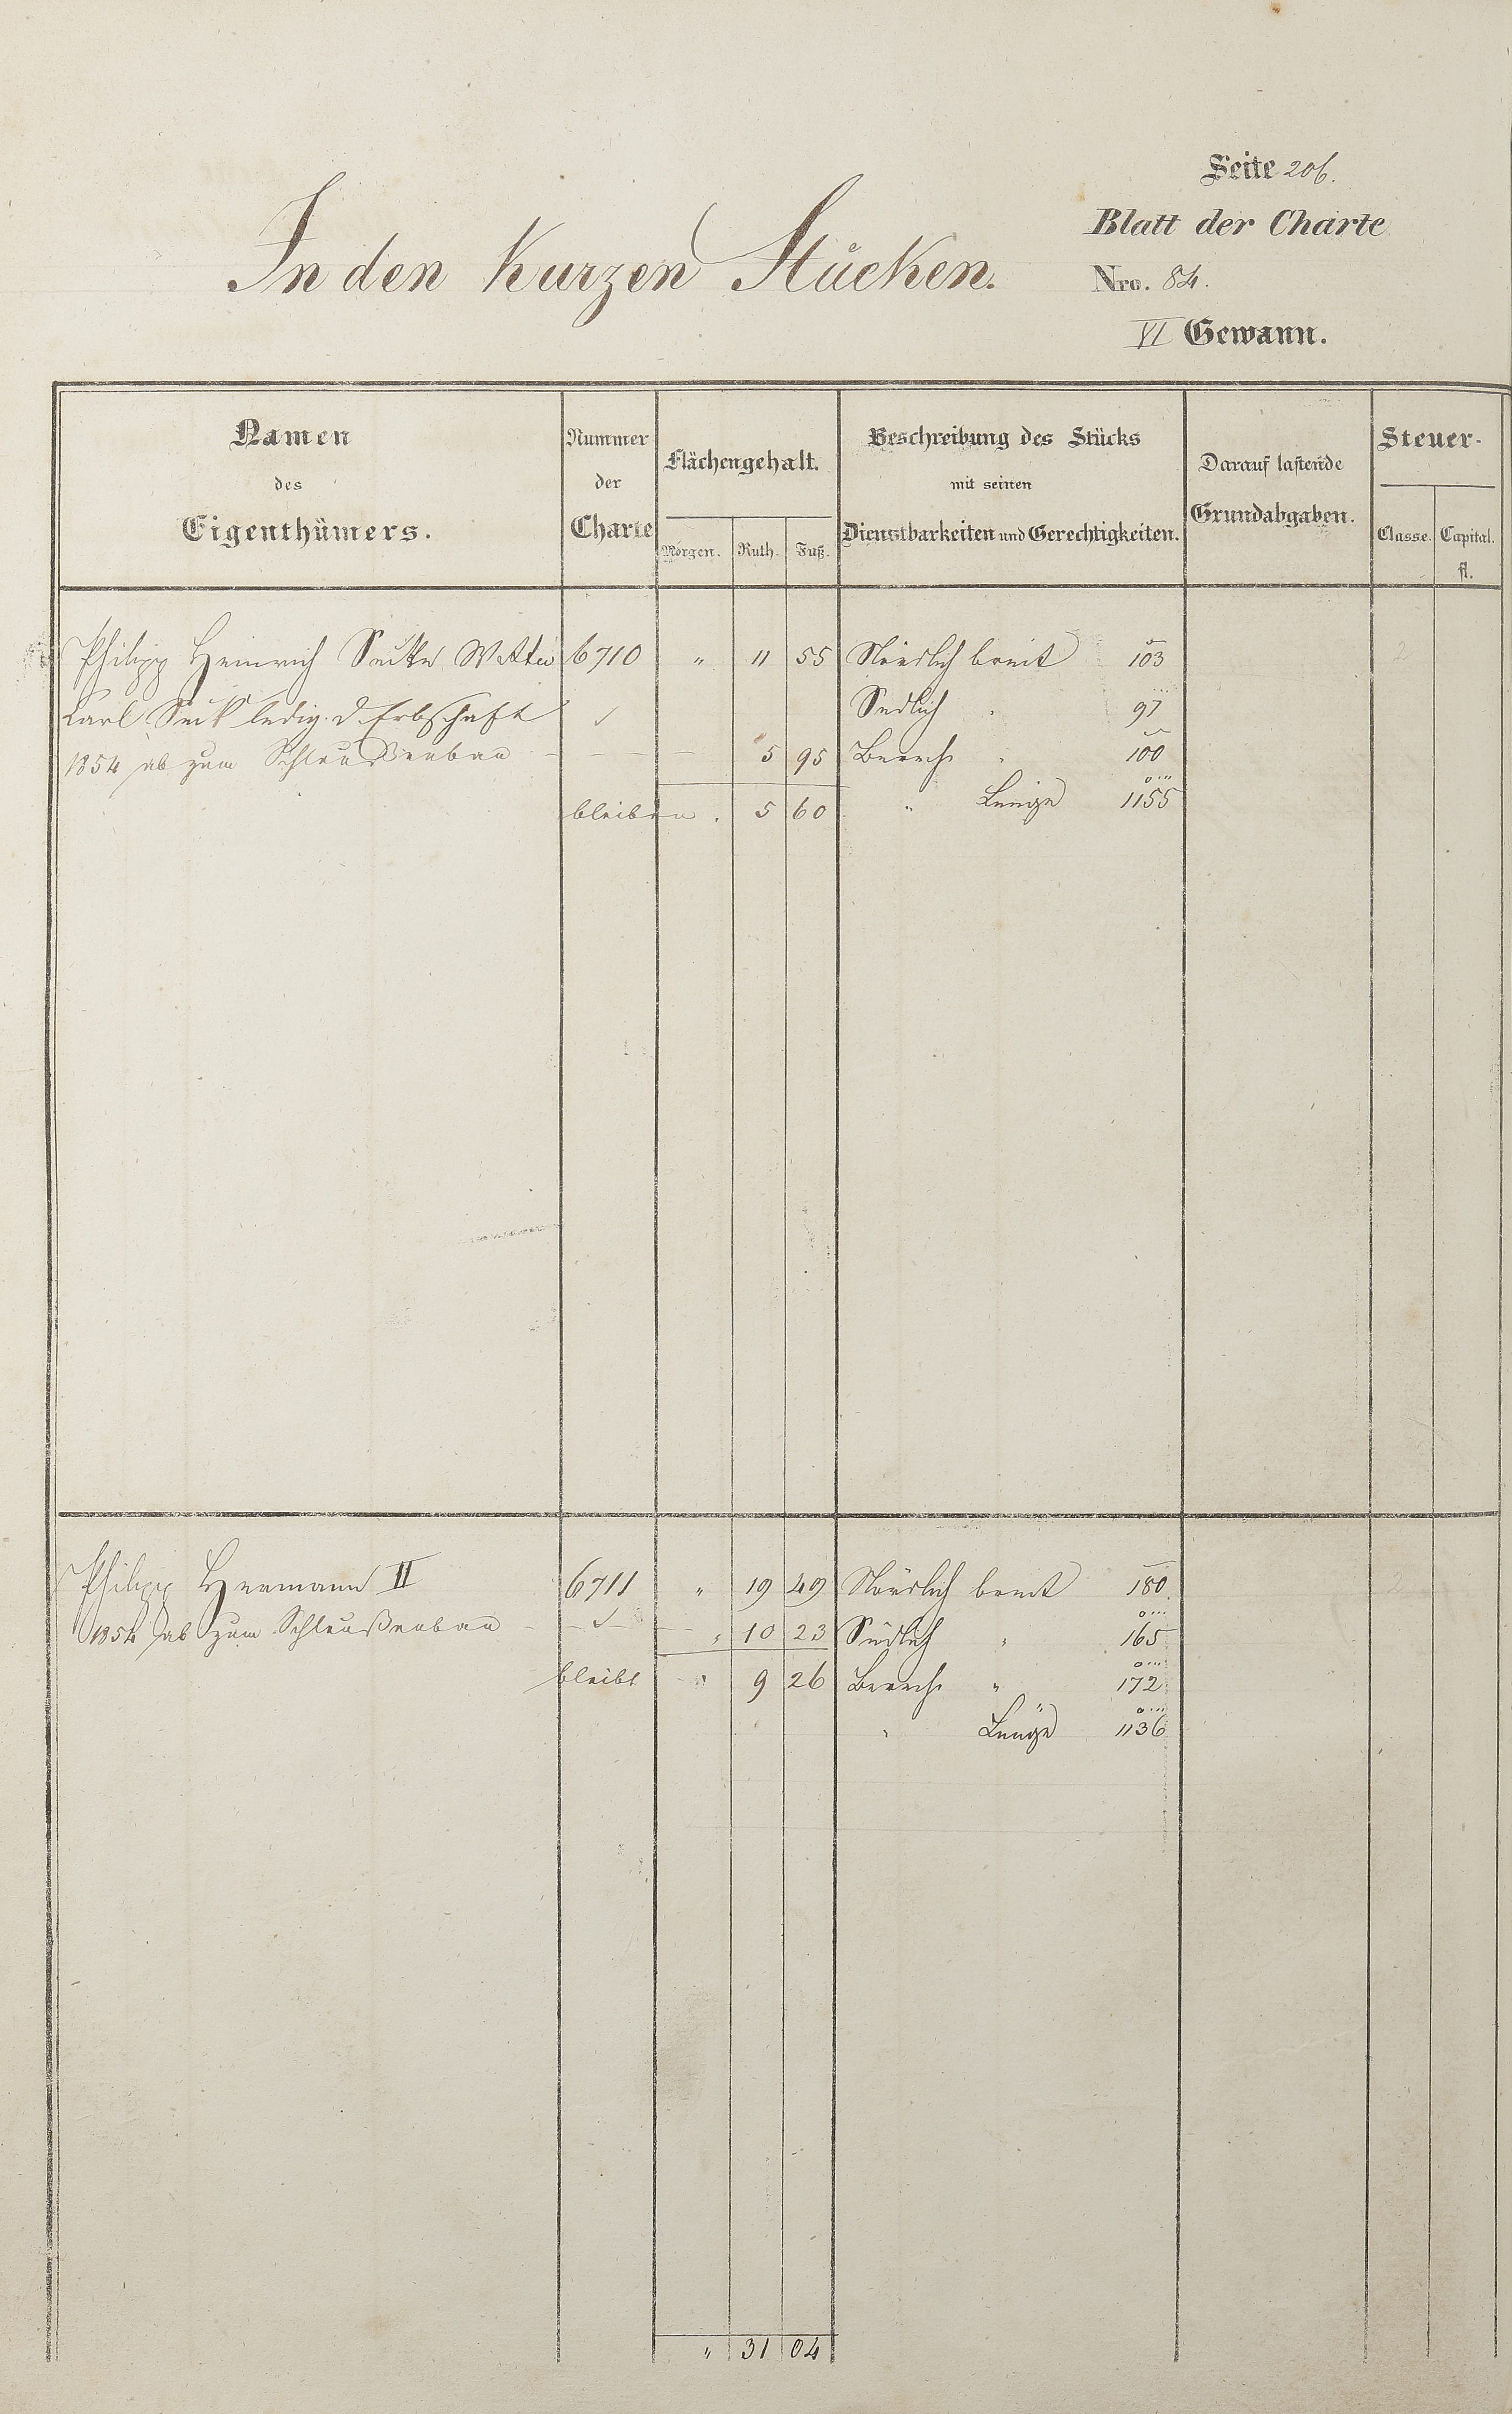 Seite 206.
Blatt der Charte
In den Kurzen Stücken.
Nro. 84.
VI Gewann.
Namen
des
Eigenthümers.
Nummer
der
Charte
Flächengehalt.
Morgen. Ruth. Fuß.
Beschreibung des Stücks
mit seinen
Dienstbarkeiten und Gerechtigkeiten.
Darauf lastende
Grundabgaben.
Steuer-
Classe. Capital.
fl.
Philipp Heinrich 6710 " 11 55 Nördlich breit 103 2
Karl Seck ledig. d. Erbschaft Südlich " 97
1854 ab zum Schleußenbau 5 95 Berech. " 100
bleiben . 5 60 " Länge 1155
Philipp Hermann II 6711 " 19 49 Nördlich breit 180 2
1854 ab zum Schleußenbau " 10 23 Südlich " 165
bleibt " 9 26 Berech. " 172
" Länge 1136
" 31 04